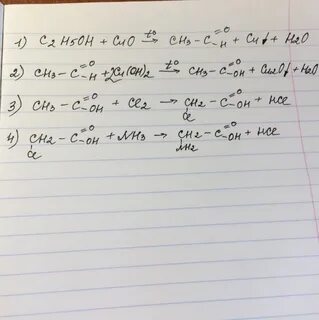 1) C2H5OH + CuO t°→ CH3-C=O-H + Cu↓ + H2O
2) CH3-C=O-H + 2Cu(OH)2 t°→ CH3-C=O-OH + Cu2O↓ + H2O
3) CH3-C=O-OH + Cl2 → CH2-C=O-OH + HCl
Cl
4) CH2-C=O-OH + NH3 → CH2-C=O-OH + HCl
Cl NH2